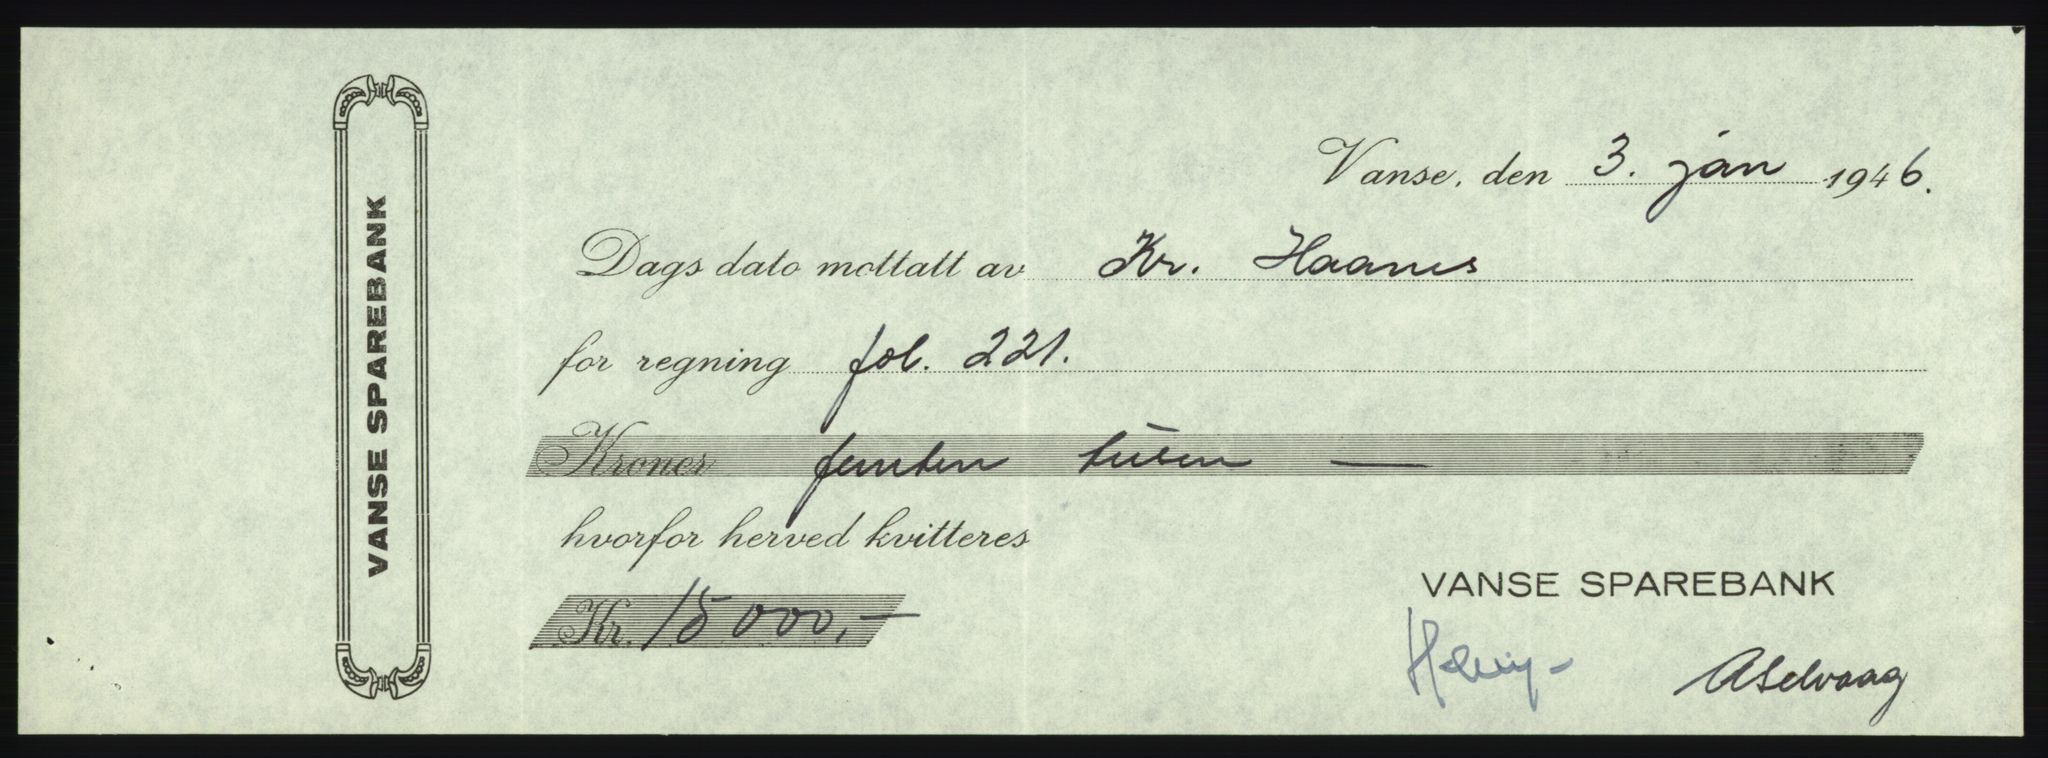 VANSE SPAREBANK
Vanse, den 3. jan 1946.
Dags dato mottatt av Kr. Haanes
for regning fol. 221.
Kroner femten tusen —
hvorfor herved kvitteres
Kr. 15000,-
VANSE SPAREBANK
ASelvaag